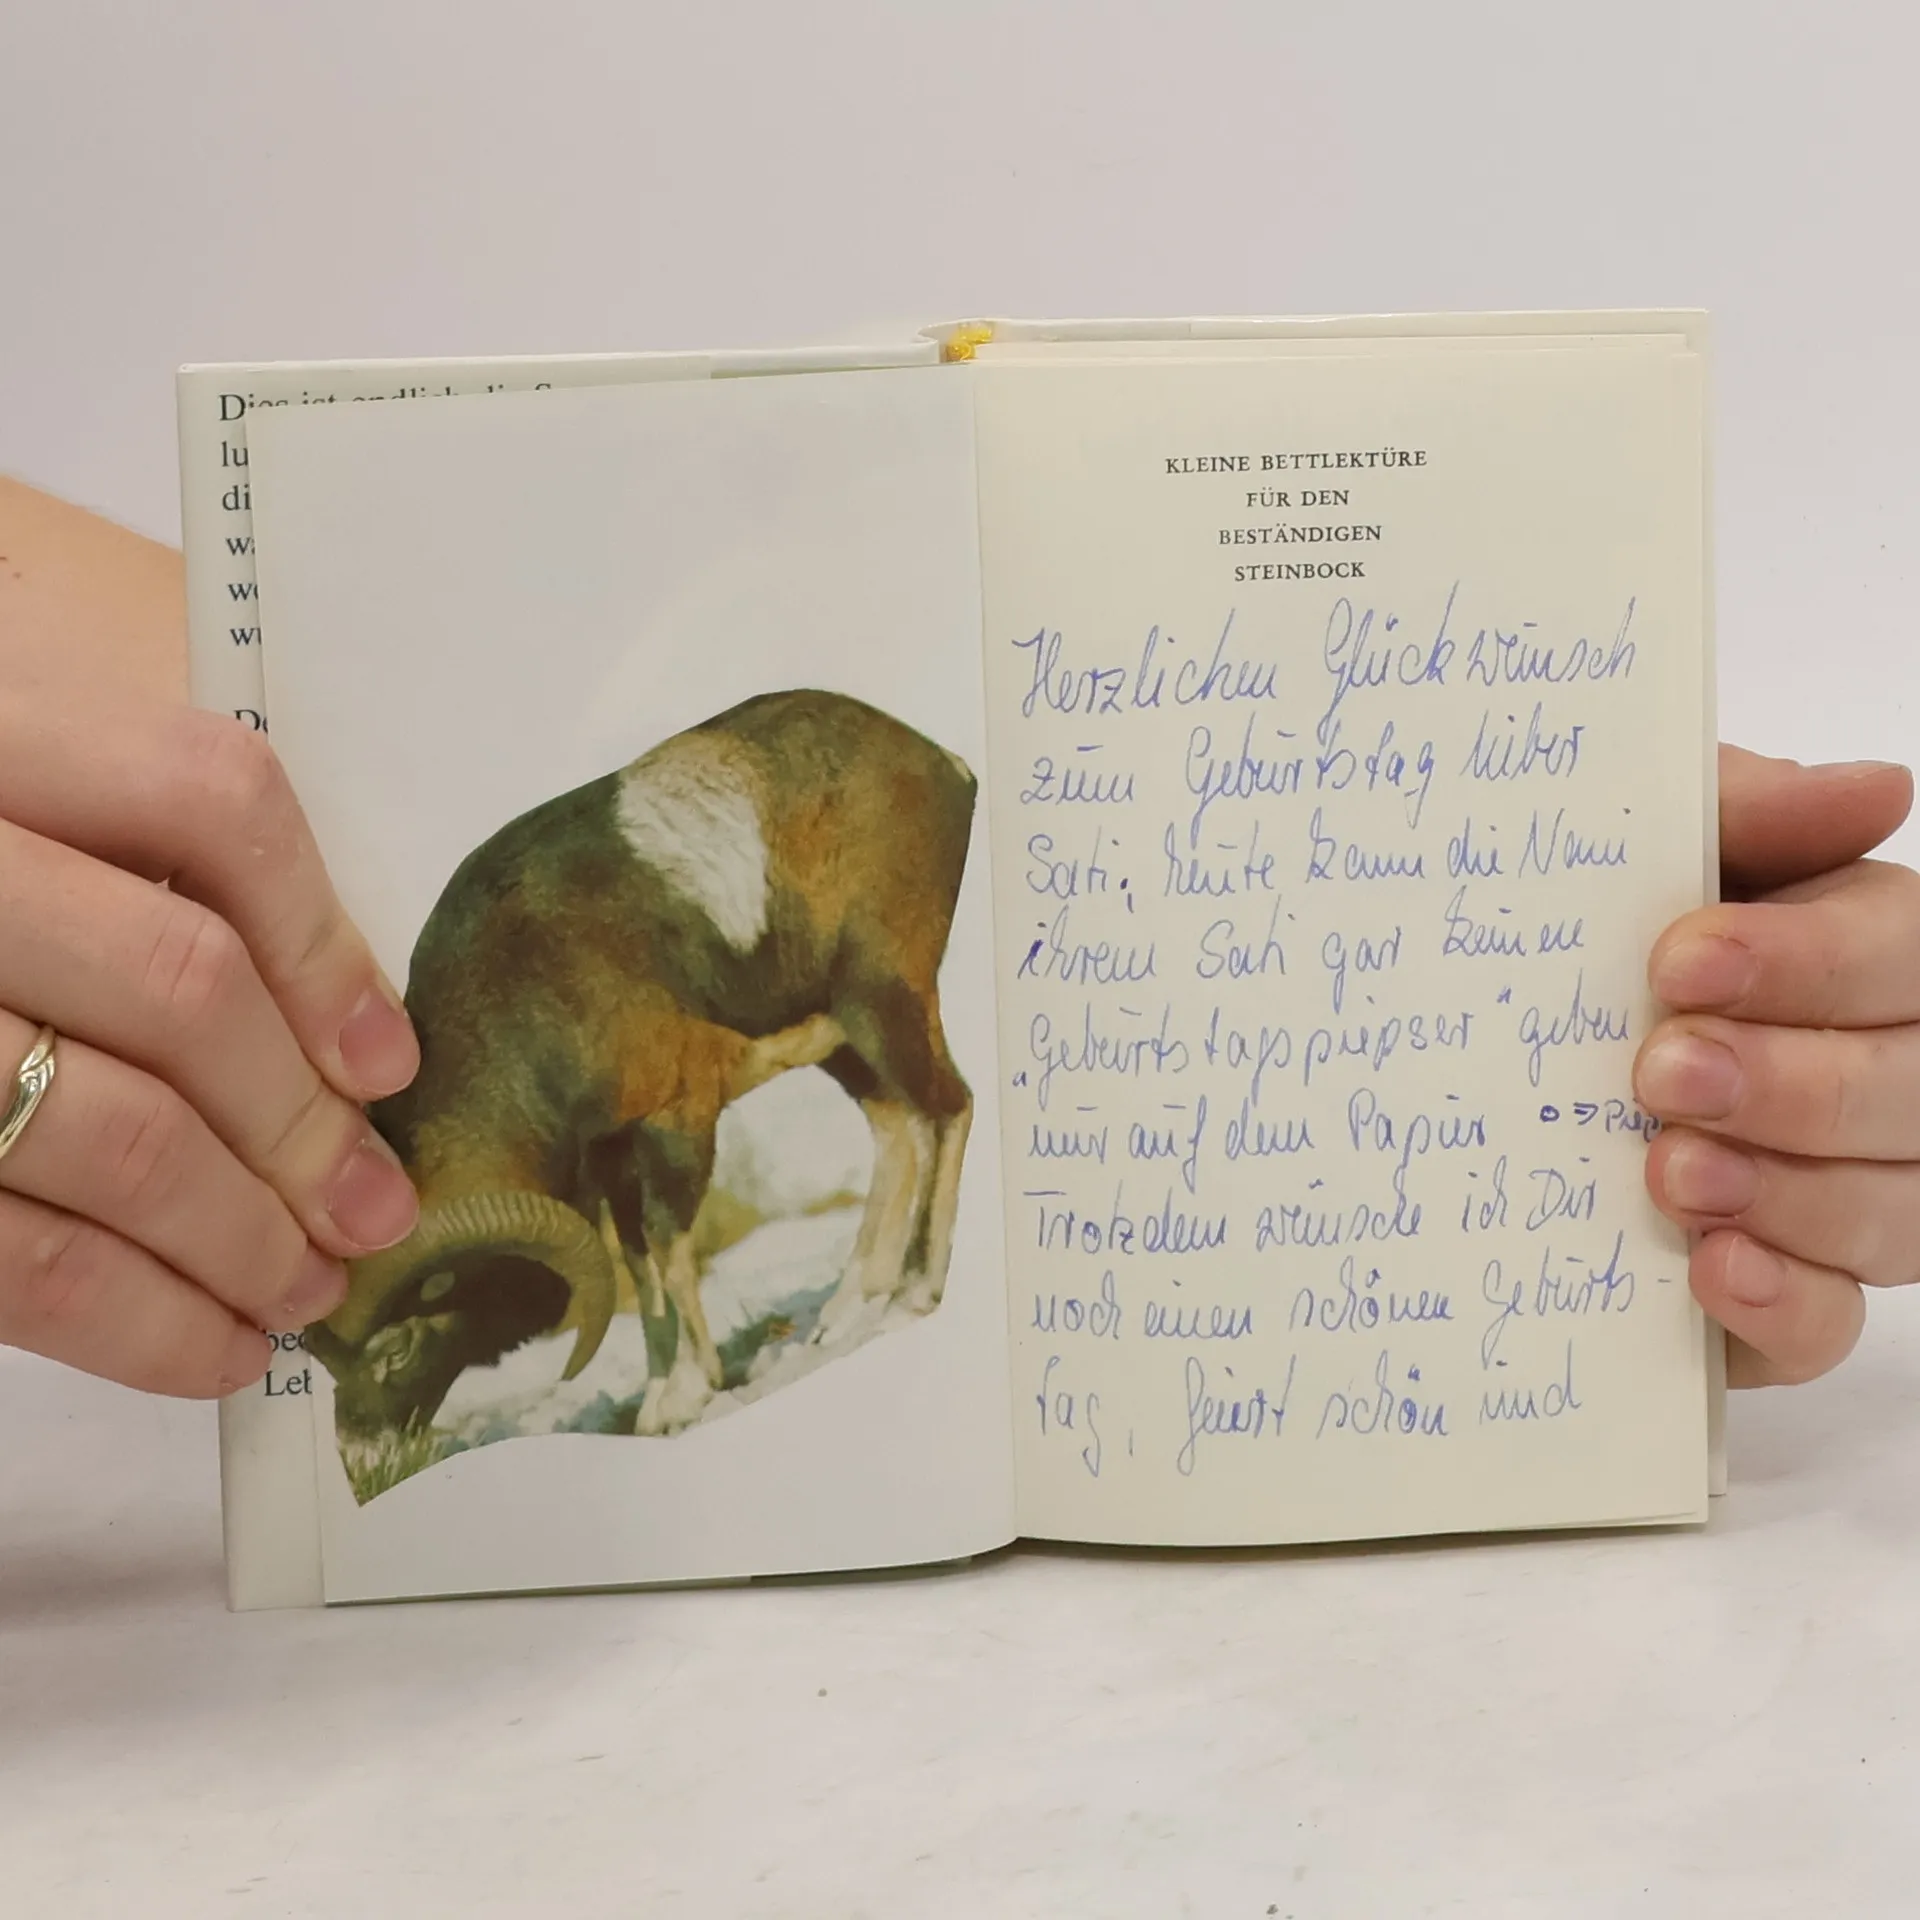 Dies ist endlich die
lu
di
wa
we
wu
De
bec
Leb
KLEINE BETTLEKTÜRE
FÜR DEN
BESTÄNDIGEN
STEINBOCK
Herzlichen Glückwünsch
zum Geburtstag lieber
Sati; heute kann die Nani
ihrem Sati gar keinen
„Geburtstagspiepser" geben
nur auf dem Papier o => Piep
Trotzdem wünsche ich Dir
noch einen schönen Geburts-
tag, feiert schön und